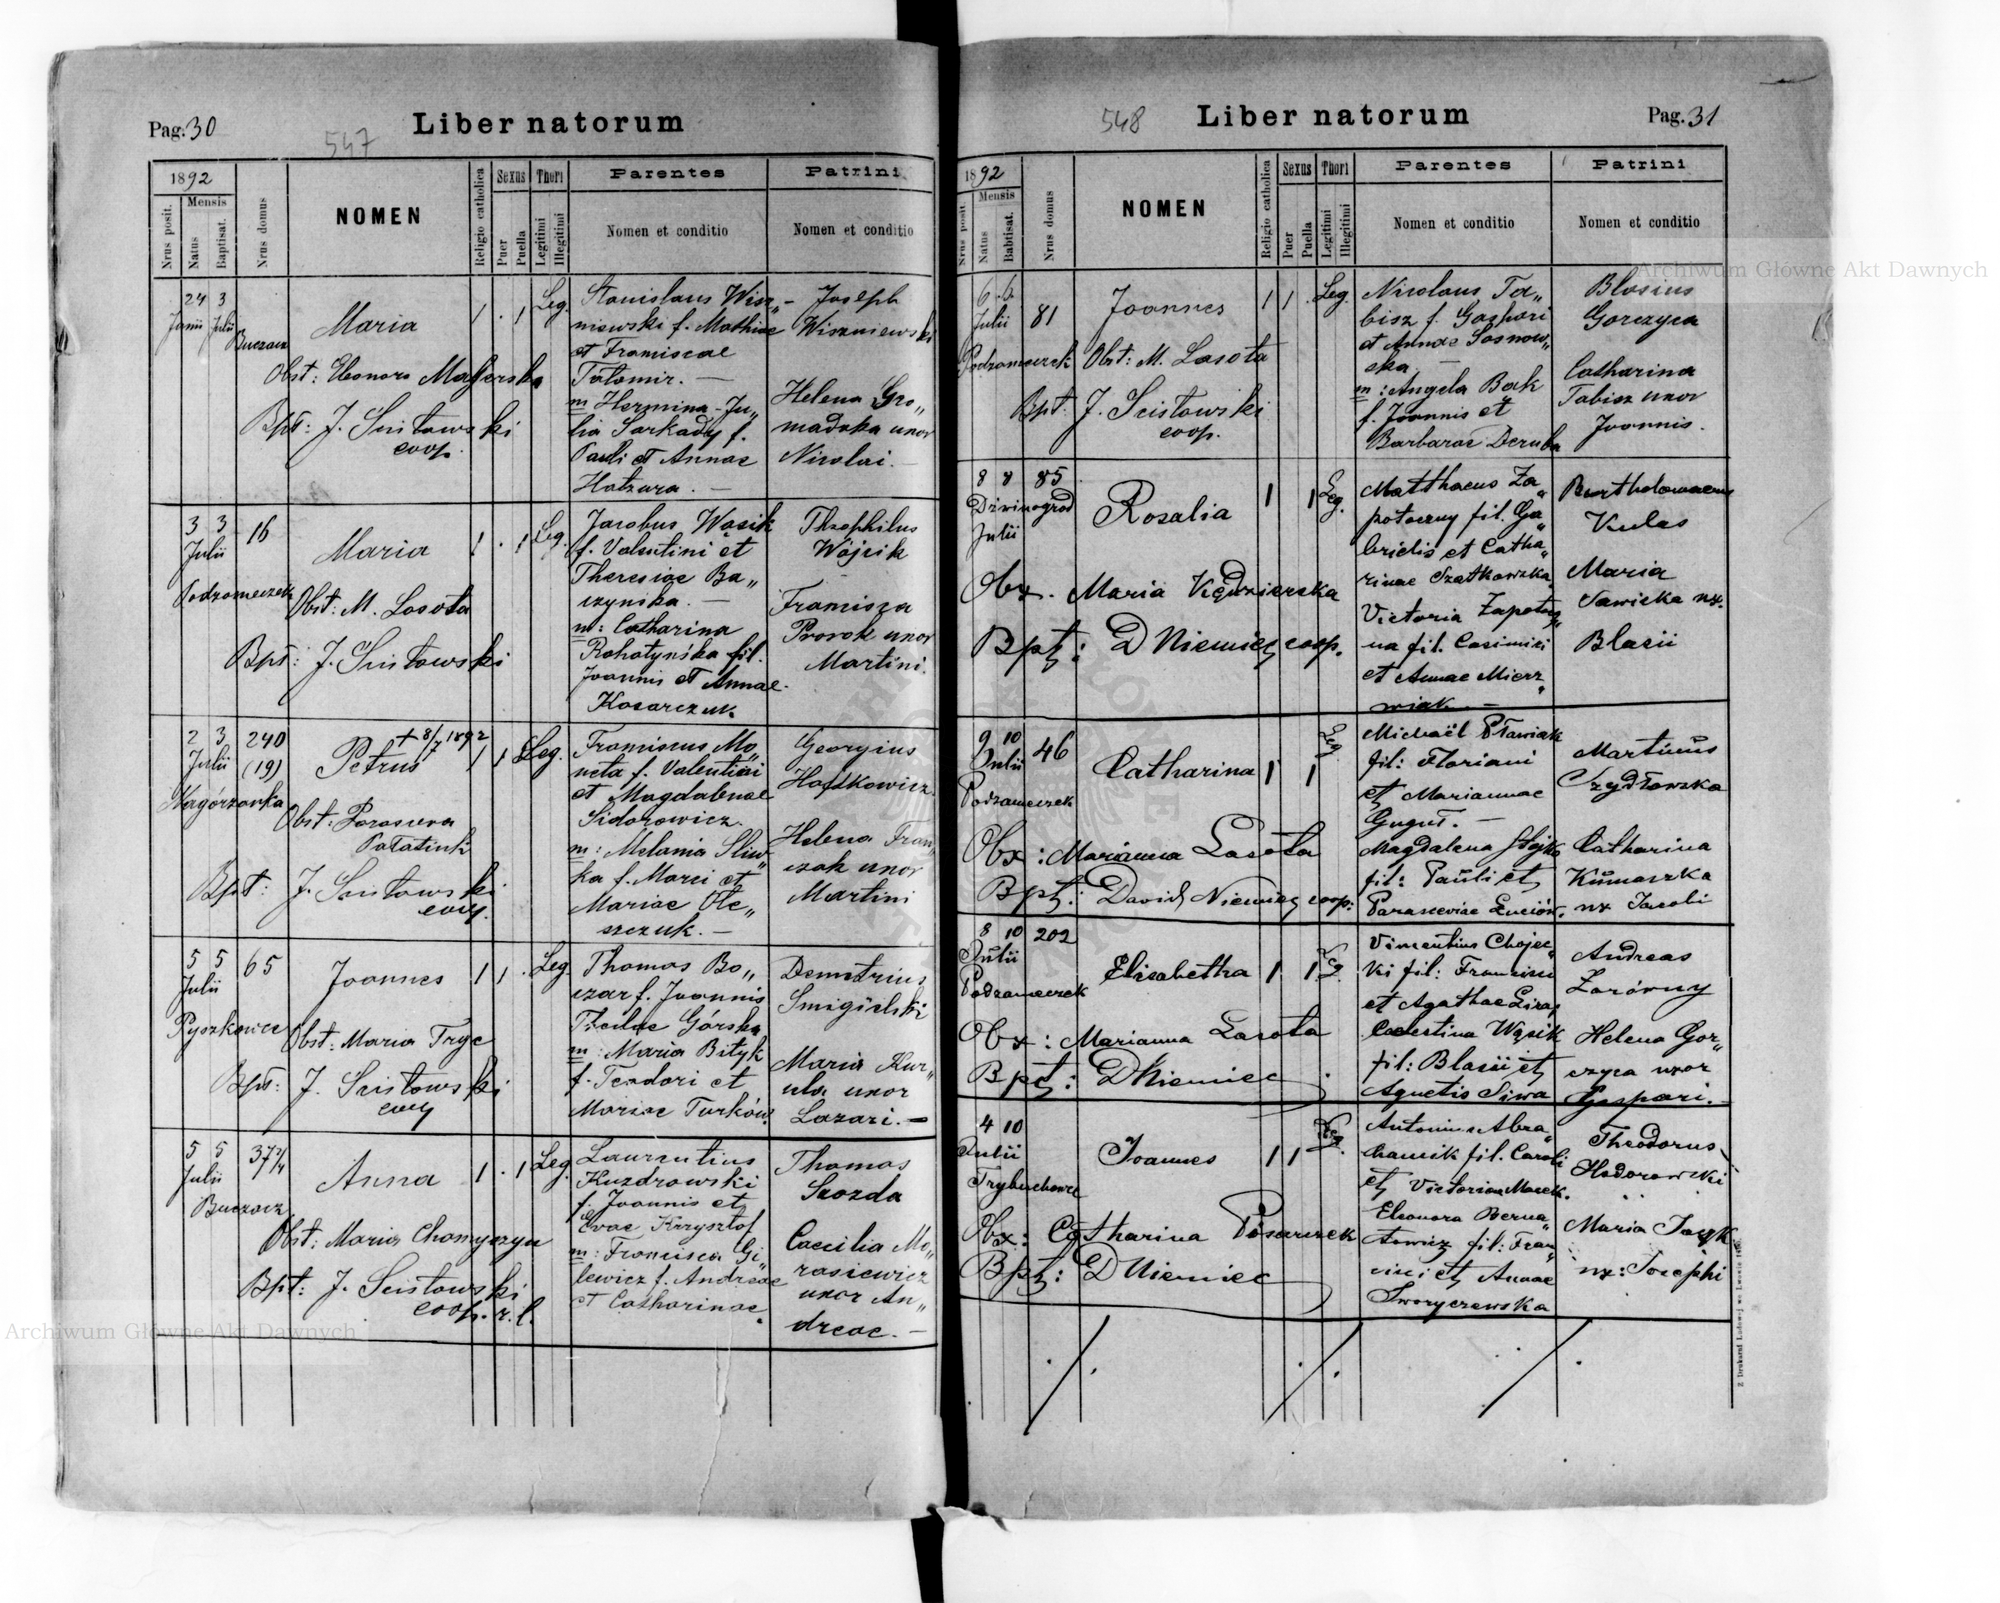 Pag. 30
547
Liber natorum
1892
Mensis
Nrus posit.
Natus
Baptisat.
Nrus domus
NOMEN
Religio catholica
Sexus
Puer
Puella
Thori
Legitimi
Illegitimi
Parentes
Nomen et conditio
Patrini
Nomen et conditio
24 3
Junii Julii
Buczacz
Maria
1 . 1 Leg.
Obst: Eleonora
Bpt: J. Scisłowski
coop.
Stanislaus Wisz„
niewski f. Mathiae
et Franciscae
Tatomir. —
m Hermina-Ju„
lia Sarkady f.
Pauli et Annae
Hatzura. —
Joseph
Wiszniewski
Helena Gro„
madzka uxor
Nicolai. —
3 3 16
Julii
Podzameczek
Maria
1 . 1 Leg.
Obst: M. Lasota
Bpt: J. Scisłowski
Jacobus Wąsik
f. Valentini et
Theresiae Ba„
czyńska. —
m: Catharina
Rohatyńska fil.
Joannis et Annae
Kosarczuk
Theophilus
Wójcik
Francisca
Prorok uxor
Martini.
2 3 240
Julii (19)
Nagórzanka
+ 8/7 1892
Petrus
1 1 Leg.
Obst: Parasceva
Bpt: J. Scisłowski
coop.
Franciscus Mo„
neta f. Valentini
et Magdalenae
Sidorowicz.
m: Melania Sliw„
ka f. Marci et
Mariae Ole„
szczuk. —
Georgius
Helena Fran„
czak uxor
Martini
5 5 65
Julii
Pyszkowce
Joannes
1 1 . Leg.
Obst: Maria Tryc
Bpt: J. Scisłowski
coop
Thomas Bo„
czar f. Joannis
Theclae Górska
m: Maria Bityk
f. Teodori et
Mariae Turków.
Demetrius
Smigielski
Maria Kur„
uxor
Lazari. —
5 5 37 3/4
Julii
Buczacz
Anna
1 . 1 Leg.
Obst: Maria Chomyszyn
Bpt: J. Scisłowski
coop. r. l.
Laurentius
Kuzdrowski
f. Joannis et
Evae Krzysztof
m: Francisca Gi„
lewicz f. Andreae
et Catharinae
Thomas
Caecilia Mo„
rasiewicz
uxor An„
dreae. —
548
Liber natorum
Pag. 31
1892
Mensis
Nrus posit.
Natus
Babtisat.
Nrus domus
NOMEN
Religio catholica
Sexus
Puer
Puella
Thori
Legitimi
Illegitimi
Parentes
Nomen et conditio
Patrini
Nomen et conditio
6 6
Julii 81
Podzameczek
Joannes
1 1 . Leg.
Obst: M. Lasota
Bpt: J. Scisłowski
coop.
Nicolaus Ta„
bisz f. Gaspari
et Annae Sosnow„
ska —
m: Angela Bąk
f. Joannis et
Barbarae Deruba
Blasius
Gorczyca
Catharina
Tabisz uxor
Joannis.
8 8 85
Dzwinogrod
Julii
Rosalia
1 1 Leg.
Obx. Maria Kędzierska
Bptz: D Niemiec coop.
Matthaeus Za„
potoczny fil. Ga„
brielis et Catha„
rinae Szatkowska
Victoria Zapotocz„
na fil. Casimiri
et Annae Mierz„
wiak —
Bartholomaeus
Kulas
Maria
Sawicka ux.
Blasii
9 10 46
Julii
Podzameczek
Catharina
1 1 Leg
Obx: Marianna Lasota
Bptz: David Niemiec coop:
Michaël Pławiak
fil: Floriani
et Mariannae
Guguł. —
Magdalena
fil: Pauli et
Parasceviae
Martinus
Szydłowska
Catharina
Kumaszka
ux Jacobi
8 10 202
Julii
Podzameczek
Elisabetha
1 1 Leg.
Obx: Marianna Lasota
Bptz: D Niemiec
Vincentius Chojec„
ki fil: Francisci
et Agathae
Caelestina Wąsik
fil: Blasii et
Agnetis Siwa
Andreas
Helena Gor„
czyca uxor
Gaspari. —
4 10
Julii
Trybuchowce
Joannes
1 1 Leg.
Obx: Catharina Pisarczek
Bptz: D Niemiec
Antonius Abra„
hamik fil. Caroli
et Victoriae
Eleonora Berna„
towicz fil: Fran„
cisci et Annae
Skworyczewska
Theodorus
Hodorowski
Maria
ux: Josephi
Z Drukarni Ludowej we Lwowie
Archiwum Główne Akt Dawnych
Archiwum Główne Akt Dawnych